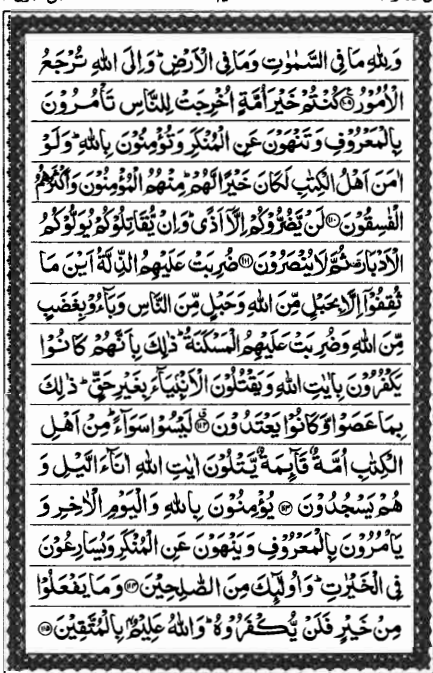 وَلِلّٰهِ مَا فِى السَّمٰوٰتِ وَمَا فِى الْاَرْضِ ؕ وَاِلَى اللّٰهِ تُرْجَعُ
الْاُمُوْرُ ﴿۱۰۹﴾ كُنْتُمْ خَيْرَ اُمَّةٍ اُخْرِجَتْ لِلنَّاسِ تَاْمُرُوْنَ
بِالْمَعْرُوْفِ وَتَنْهَوْنَ عَنِ الْمُنْكَرِ وَتُؤْمِنُوْنَ بِاللّٰهِ ؕ وَلَوْ
اٰمَنَ اَهْلُ الْكِتٰبِ لَكَانَ خَيْرًا لَّهُمْ ؕ مِنْهُمُ الْمُؤْمِنُوْنَ وَاَكْثَرُهُمُ
الْفٰسِقُوْنَ ﴿۱۱۰﴾ لَنْ يَّضُرُّوْكُمْ اِلَّاۤ اَذًى ؕ وَاِنْ يُّقَاتِلُوْكُمْ يُوَلُّوْكُمُ
الْاَدْبَارَ ۟ ثُمَّ لَا يُنْصَرُوْنَ ﴿۱۱۱﴾ ضُرِبَتْ عَلَيْهِمُ الذِّلَّةُ اَيْنَ مَا
ثُقِفُوْۤا اِلَّا بِحَبْلٍ مِّنَ اللّٰهِ وَحَبْلٍ مِّنَ النَّاسِ وَبَآءُوْ بِغَضَبٍ
مِّنَ اللّٰهِ وَضُرِبَتْ عَلَيْهِمُ الْمَسْكَنَةُ ؕ ذٰلِكَ بِاَنَّهُمْ كَانُوْا
يَكْفُرُوْنَ بِاٰيٰتِ اللّٰهِ وَيَقْتُلُوْنَ الْاَنْۢبِيَآءَ بِغَيْرِ حَقٍّ ؕ ذٰلِكَ
بِمَا عَصَوْا وَّكَانُوْا يَعْتَدُوْنَ ﴿۱۱۲﴾ لَيْسُوْا سَوَآءً ؕ مِنْ اَهْلِ
الْكِتٰبِ اُمَّةٌ قَآئِمَةٌ يَّتْلُوْنَ اٰيٰتِ اللّٰهِ اٰنَآءَ الَّيْلِ وَ
هُمْ يَسْجُدُوْنَ ﴿۱۱۳﴾ يُؤْمِنُوْنَ بِاللّٰهِ وَالْيَوْمِ الْاٰخِرِ وَ
يَاْمُرُوْنَ بِالْمَعْرُوْفِ وَيَنْهَوْنَ عَنِ الْمُنْكَرِ وَيُسَارِعُوْنَ
فِى الْخَيْرٰتِ ؕ وَاُولٰٓئِكَ مِنَ الصّٰلِحِيْنَ ﴿۱۱۴﴾ وَمَا يَفْعَلُوْا
مِنْ خَيْرٍ فَلَنْ يُّكْفَرُوْهُ ؕ وَاللّٰهُ عَلِيْمٌۢ بِالْمُتَّقِيْنَ ﴿۱۱۵﴾